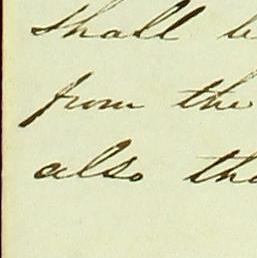 shall be
from the
also the